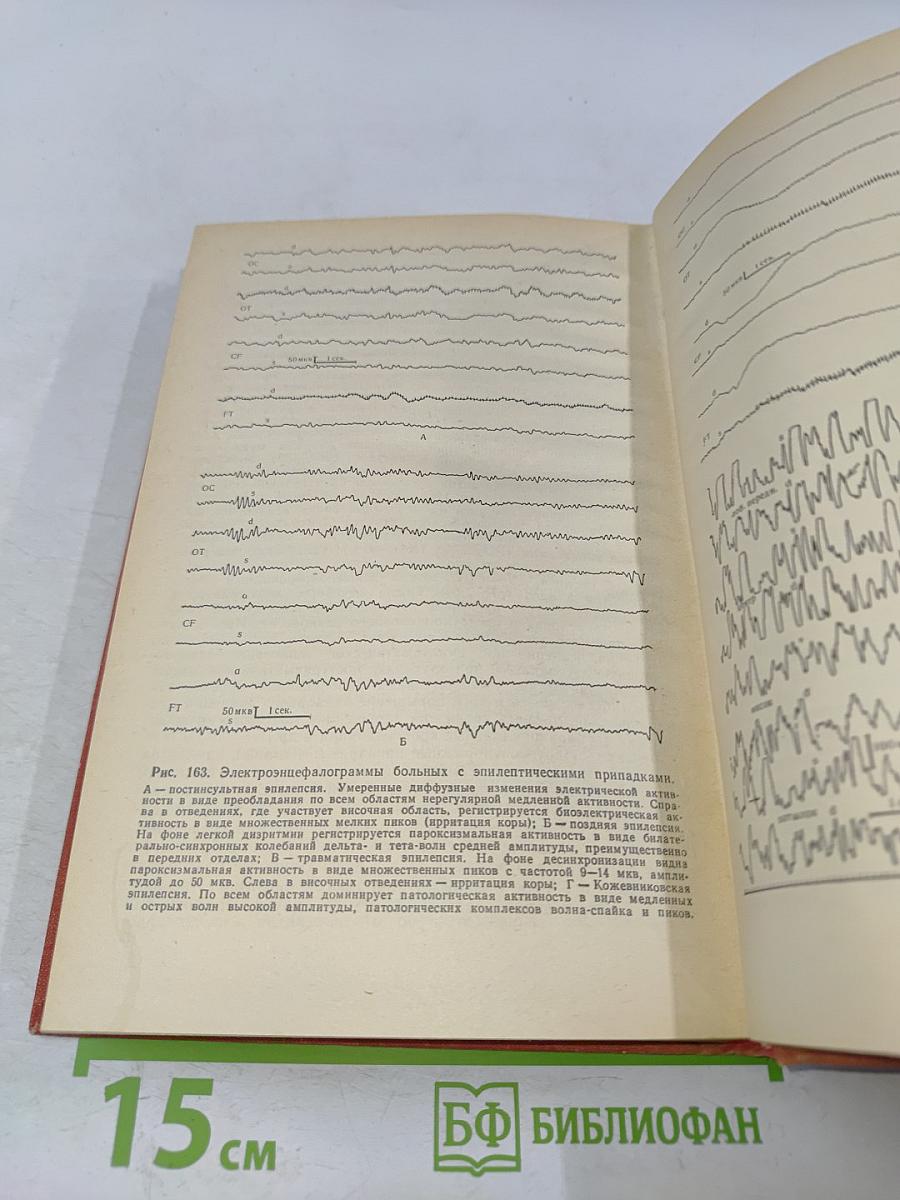 d
ОС
s
d
ОТ
s
d
CF
s
50 мкв 1 сек.
d
FT
s
А
d
ОС
s
d
ОТ
s
d
CF
s
d
FT
50 мкв 1 сек.
s
Б
Рис. 163. Электроэнцефалограммы больных с эпилептическими припадками.
А — постинсультная эпилепсия. Умеренные диффузные изменения электрической актив-
ности в виде преобладания по всем областям нерегулярной медленной активности. Спра-
ва в отведениях, где участвует височная область, регистрируется биоэлектрическая ак-
тивность в виде множественных мелких пиков (ирритация коры); Б — поздняя эпилепсия.
На фоне легкой дизритмии регистрируется пароксизмальная активность в виде билате-
рально-синхронных колебаний дельта- и тета-волн средней амплитуды, преимущественно
в передних отделах; В — травматическая эпилепсия. На фоне десинхронизации видна
пароксизмальная активность в виде множественных пиков с частотой 9—14 мкв, ампли-
тудой до 50 мкв. Слева в височных отведениях — ирритация коры; Г — Кожевниковская
эпилепсия. По всем областям доминирует патологическая активность в виде медленных
и острых волн высокой амплитуды, патологических комплексов волна-спайка и пиков.
ОС
ОТ
50 мкв 1 сек.
CF
FT s
15 см
БФ БИБЛИОФАН